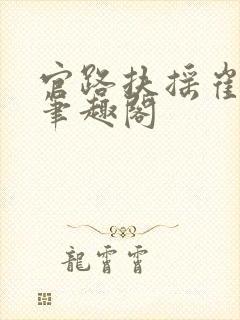 官路扶摇崔
笔趣阁
龍霄霄